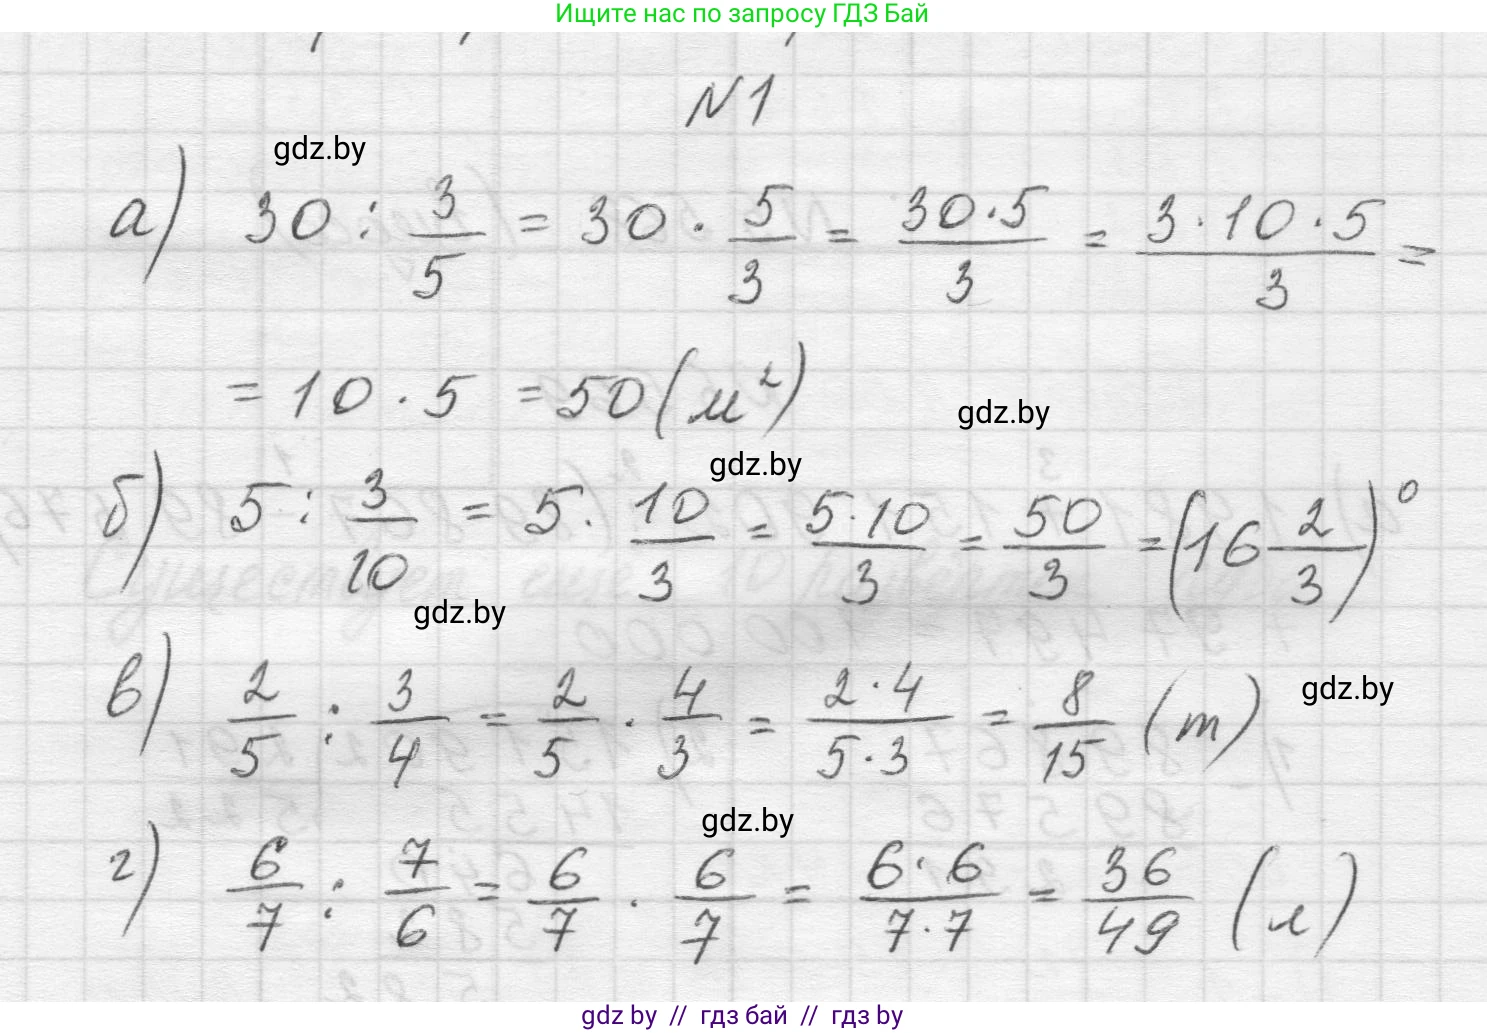 Ищите нас по запросу ГДЗ Бай
N1
gdz.by
а) 30 : 3/5 = 30 · 5/3 = 30·5/3 = 3·10·5/3 =
= 10 · 5 = 50 (м²)
gdz.by
gdz.by
б) 5 : 3/10 = 5 · 10/3 = 5·10/3 = 50/3 = (16 2/3)°
gdz.by
в) 2/5 : 3/4 = 2/5 · 4/3 = 2·4/5·3 = 8/15 (т)
gdz.by
gdz.by
г) 6/7 : 7/6 = 6/7 · 6/7 = 6·6/7·7 = 36/49 (л)
gdz.by // гдз бай // гдз by